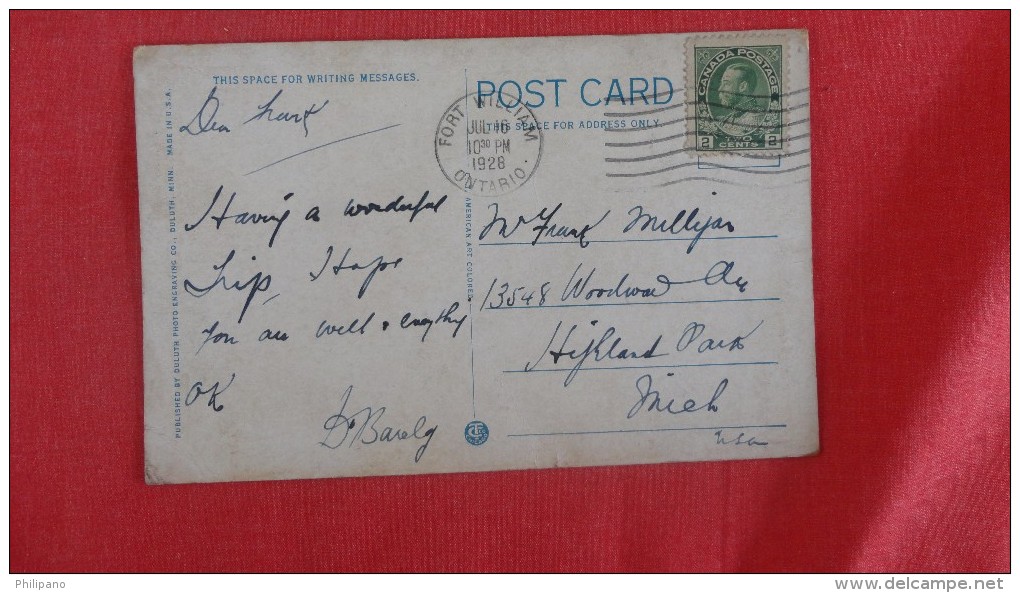 THIS SPACE FOR WRITING MESSAGES.
POST CARD
THIS SPACE FOR ADDRESS ONLY.
CANADA POSTAGE
2 TWO CENTS 2
FORT WILLIAM
JUL 16
10 30 PM
1928
ONTARIO.
Dear Frank
Having a wonderful
Trip, I Hope
you are well & everything
OK
PUBLISHED BY DULUTH PHOTO ENGRAVING CO., DULUTH, MINN. MADE IN U.S.A.
AMERICAN ART COLORED
Mr Frank Milligan
13548 Woodward Ave
Highland Park
Mich
USA
Philipano
www.delcampe.net